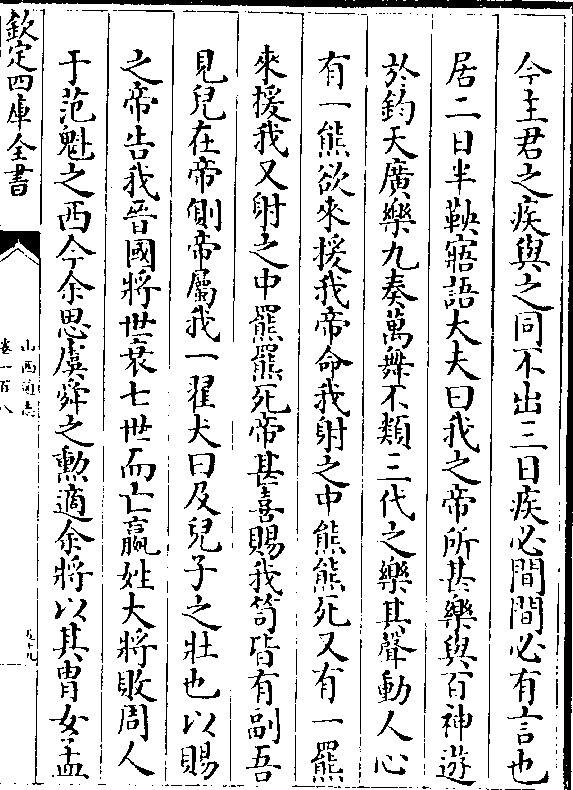 今主君之疾與之同不出三日疾必間間必有言也
居二日半鞅寤語大夫曰我之帝所甚樂與百神遊
於鈞天廣樂九奏萬舞不類三代之樂其聲動人心
有一熊欲來援我帝命我射之中熊熊死又有一羆
來援我又射之中羆羆死帝甚喜賜我笥皆有副吾
見兒在帝側帝屬我一翟犬曰及兒子之壯也以賜
之帝告我晉國將世衰七世而亡嬴姓大將敗周人
于范魁之西今余思虞舜之勲適余將以其胄女孟
欽定四庫全書
山西通志
卷一百八
五十九